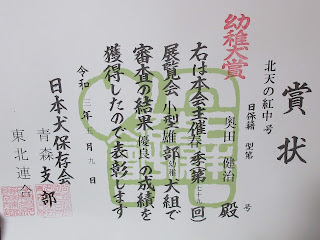 賞状
幼稚犬賞
北天の紅中号
日保籍 型第 号
奥田健治 殿
右は本会主催 季第 回
展覧会小型雄部 幼稚犬組で
審査の結果優良の成績を
獲得したので表彰します
令和三年 月九日
日本犬保存会
青森支部
東北連合